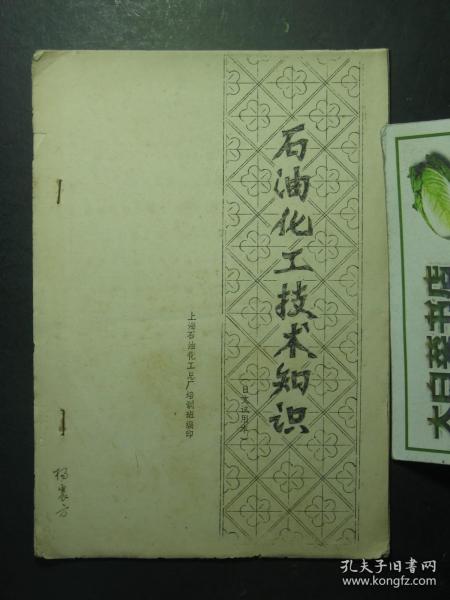 石油化工技术知识
(日文试用本)
上海石油化工总厂培训班编印
杨震方
太白菜书店
孔夫子旧书网
www.kongfz.com